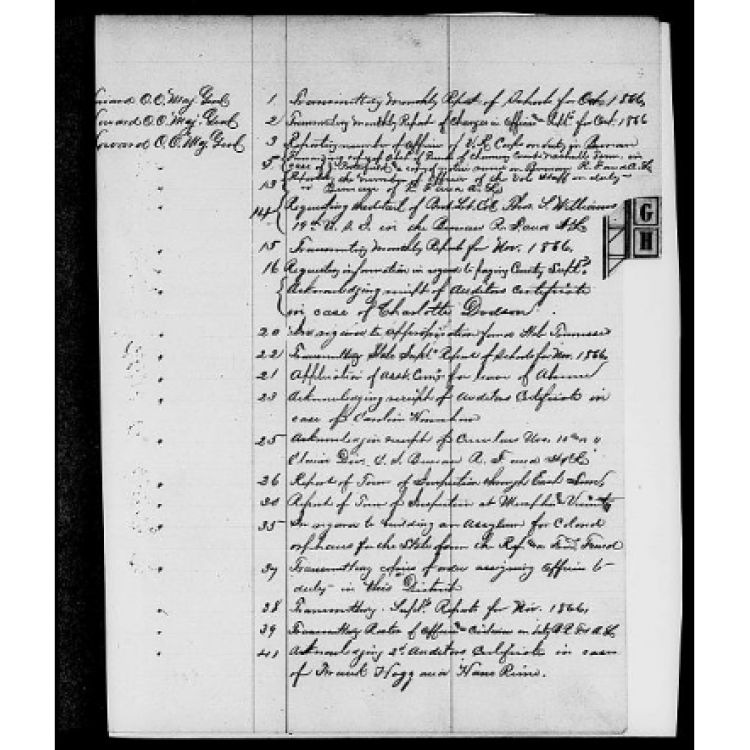 Howard O.O. Maj. Genl 1 Transmitting Monthly Report of Schools for Oct. 1866
Howard O.O. Maj. Genl 2 Transmitting Monthly Report of Changes in Officers for Oct. 1866
Howard O.O. Maj. Genl 3 Reporting number of Officers of V.R. Corps on duty in Bureau
" 5 Transmitting copy of
" 9 case of
" 13 Reporting the number of Officers of the Vol. Staff on duty
in Bureau of R. F. and A. L.
" 14 Requesting the detail of Bvt. Lt. Col. Thos. L. Williams
19th U.S.I. in the Bureau R. F. and A.L.
" 15 Transmitting Monthly Reports for Nov. 1866
" 16 Requesting information in regard to paying County Supts.
" Acknowledging receipt of Auditors Certificate
in case of Charlotte Dodson.
" 20 In regard to appropriation funds State Tennessee
" 22 Transmitting State Supts. Report of Schools for Nov. 1866
" 21 Application of Asst. Comr. for leave of Absence
" 23 Acknowledging receipt of Auditors Certificate in
case of Carolin
" 25 Acknowledging receipt of Circulars Nos. 10
Claim Div. U.S. Bureau R. F. and A. L.
" 26 Report of Tour of Inspection through East Tenn.
" 30 Report of Tour of Inspection at Memphis & Vicinity
" 35 In regard to building an Asylum for Colored
orphans for the State from the Ref. Fund
" 37 Transmitting copies of order assigning Officers to
duty in this District
" 38 Transmitting Supts. Reports for Nov. 1866
" 39 Transmitting Roster of Officers & Civilians on duty B. R. F. & A. L.
" 41 Acknowledging 2d Auditors Certificate in case
of Frank Hogg and Hans Rine.
G
H